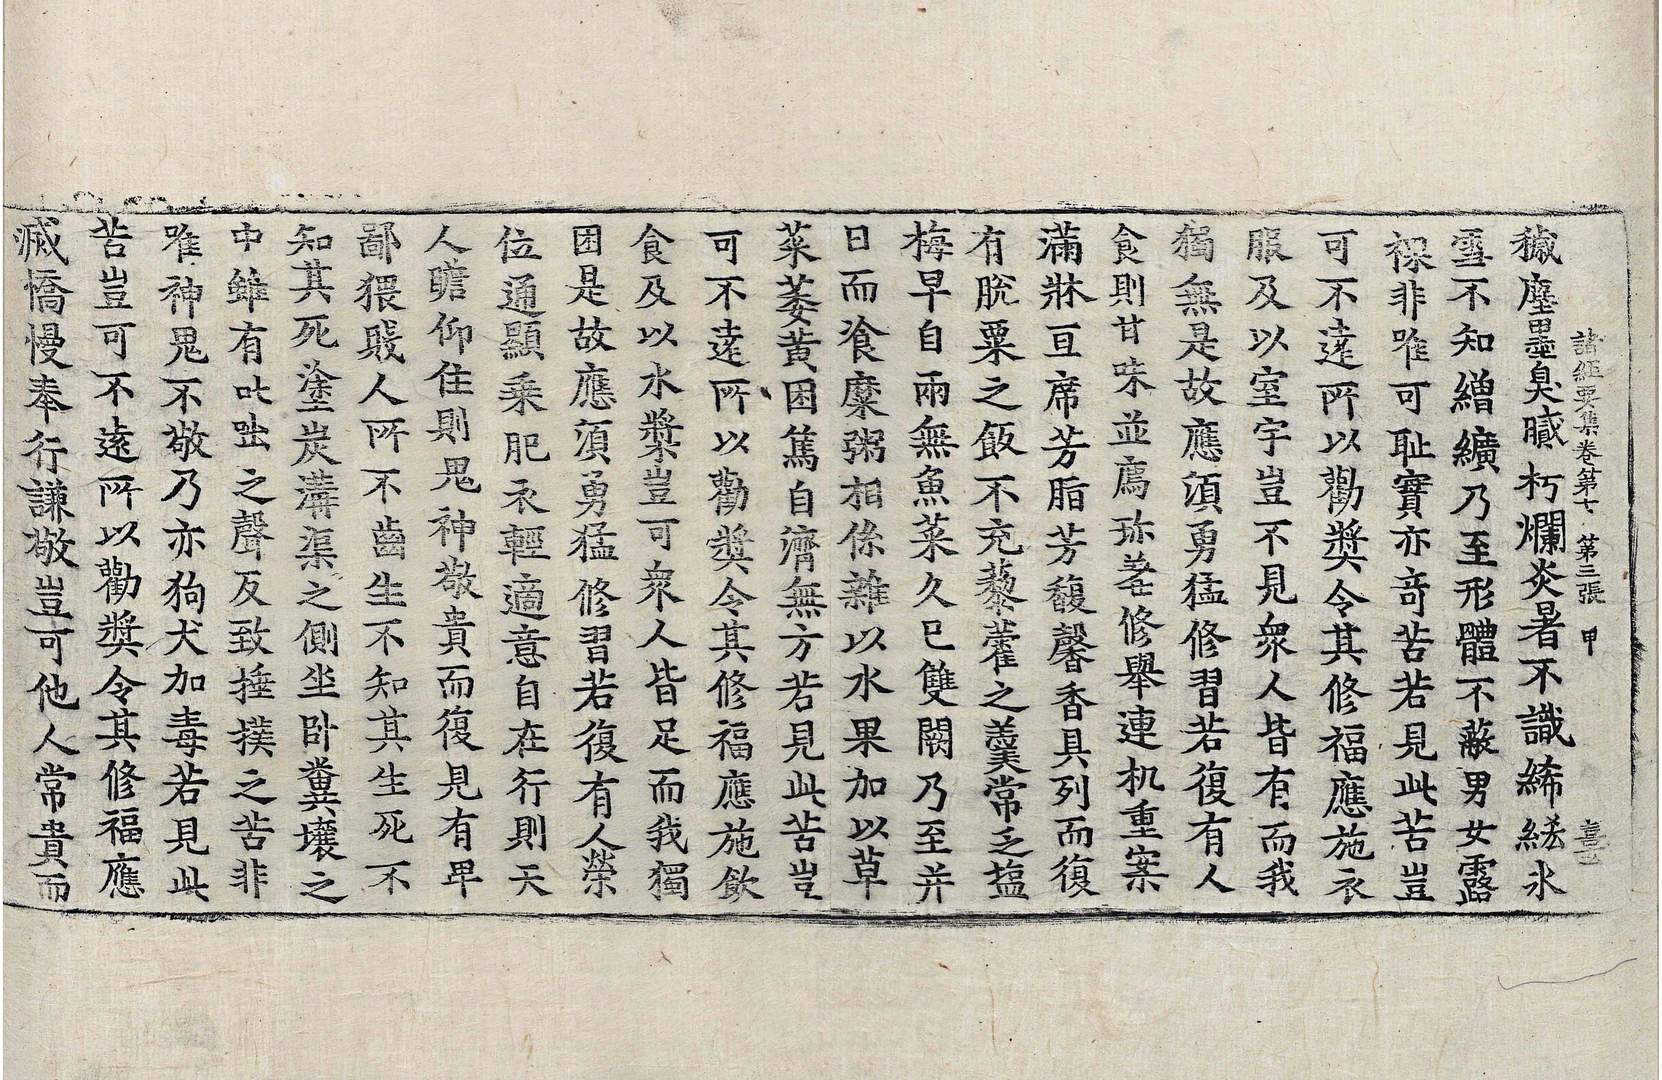 諸経要集卷第七 第三張 甲
穢塵墨臭膱朽爛炎暑不識絺綌氷
雪不知繒纊乃至形體不蔽男女露
裸非唯可耻實亦奇苦若見此苦豈
可不遠所以勸奬令其修福應施衣
服及以室宇豈不見衆人皆有而我
獨無是故應須勇猛修習若復有人
食則甘味並薦珎羞修舉連机重案
滿牀亘席芳脂芳馥馨香具列而復
有脫粟之飯不充藜藿之羹常乏塩
梅早自兩無魚菜久已雙闕乃至并
日而飡糜粥相係雜以水果加以草
菜萎黄困篤自濟無方若見此苦豈
可不遠所以勸奬令其修福應施飲
食及以水漿豈可衆人皆足而我獨
困是故應須勇猛修習若復有人榮
位通顯乗肥衣輕適意自在行則天
人瞻仰住則鬼神敬貴而復見有卑
鄙猥賤人所不齒生不知其生死不
知其死塗炭溝渠之側坐卧糞壤之
中雖有叱咄之聲反致捶撲之苦非
唯神鬼不敬乃亦狗犬加毒若見此
苦豈可不遠所以勸奬令其修福應
滅憍慢奉行謙敬豈可他人常貴而